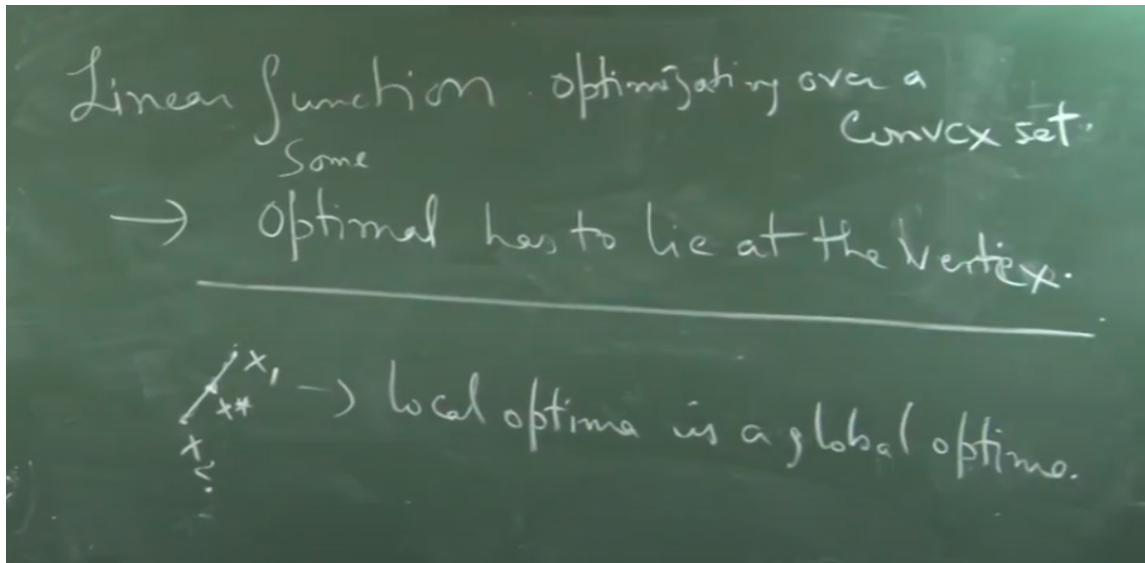 Linear function optimizating over a
Convex set.
Some
→ Optimal has to lie at the Vertex.
x₁
x* → local optima is a global optima.
x₂